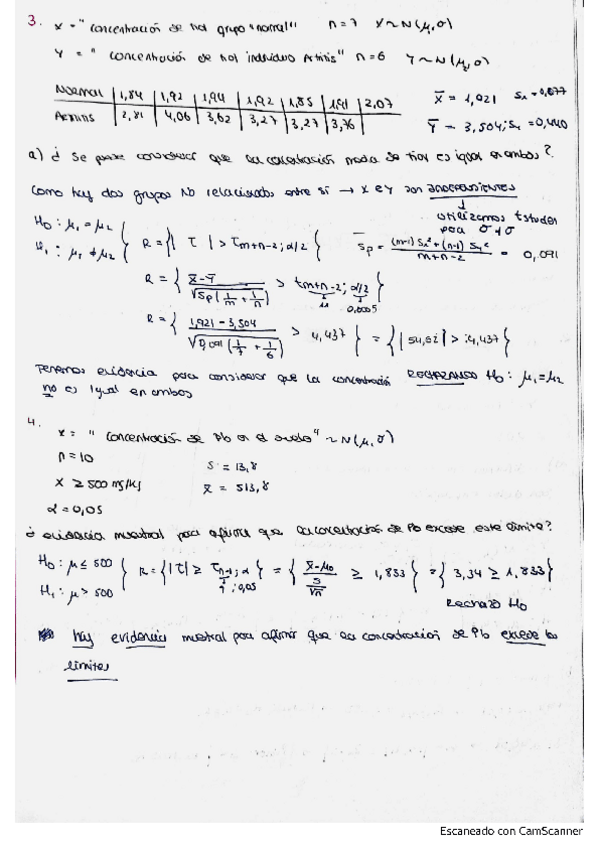 3. X = "concentración de tiol grupo "normal" n=7 X~N(μ,σ)
Y = "concentración de tiol individuo Artritis" n=6 Y~N(μ2,σ)
Normal | 1,84 | 1,92 | 1,94 | 1,92 | 1,85 | 1,91 | 2,07
Artritis | 2,81 | 4,06 | 3,62 | 3,27 | 3,27 | 3,76
X̄ = 1,921 S1 = 0,077
Ȳ = 3,504; S2 = 0,440
a) ¿ Se puede considerar que la concentración media de tiol es igual en ambos?
Como hay dos grupos NO relacionados entre sí → X e Y son independientes
utilizamos t student para σ ≠ σ
H0: μ1 = μ2
H1: μ1 ≠ μ2 } R = {| τ | > τm+n-2; α/2 } Sp = (m-1) Sx² + (n-1) Sy² / m+n-2 = 0,091
R = { X̄-Ȳ / √Sp(1/m + 1/n) > tm+n-2; α/2 }
11 0,0005
R = { 1,921 - 3,504 / √0,091 (1/7 + 1/6) > 4,437 } = {| | > 4,437}
Tenemos evidencia para considerar que la concentración RECHAZANDO H0: μ1 = μ2
no es igual en ambos
4.
X = "concentración de Pb en el suelo" ~ N(μ,σ)
n = 10 S = 13,8
X ≥ 500 mg/kg x̄ = 513,8
α = 0,05
¿ evidencia muestral para afirmar que la concentración de Pb excede este límite?
H0: μ ≤ 500
H1: μ > 500 } R = {|τ| ≥ τn-1; α } = { x̄-μ0 / S/√n ≥ 1,833 } = {3,34 ≥ 1,833}
9 ; 0,05
Rechazo H0
Hay evidencia muestral para afirmar que la concentración de Pb excede los
límites
Escaneado con CamScanner